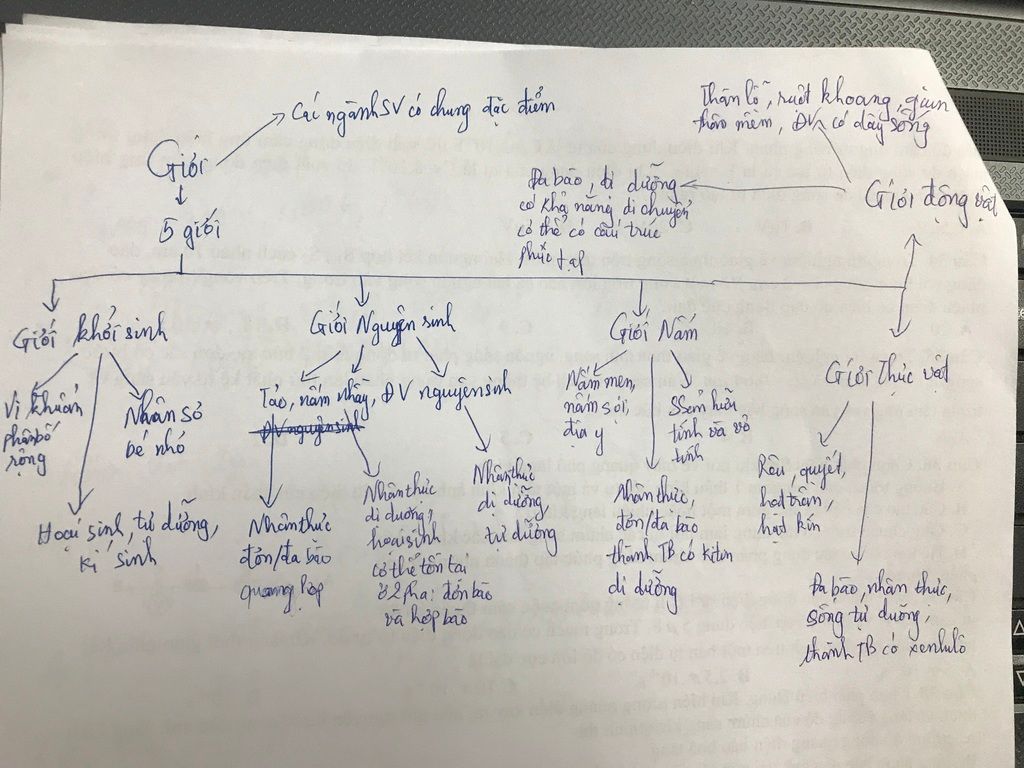 Các ngành SV có chung đặc điểm
Giới
5 giới
Thân lỗ, ruột khoang, giun
thân mềm, ĐV có dây sống
Giới động vật
Đa bào, dị dưỡng
có khả năng di chuyển
có thể có cấu trúc
phức tạp
Giới khởi sinh
Vi khuẩn
phân bố
rộng
Nhân sơ
bé nhỏ
Hoại sinh, tự dưỡng,
kí sinh
Giới Nguyên sinh
Tảo, nấm nhầy, ĐV nguyên sinh
ĐV nguyên sinh
Nhân thức
đơn/đa bào
quang hợp
Nhân thức
dị dưỡng,
hoại sinh
có thể tồn tại
ở 2 pha: đơn bào
và hợp bào
Nhân thức
dị dưỡng,
tự dưỡng
Giới Nấm
Nấm men,
nấm sợi,
địa y
SSem hữu
tính và vô
tính
Nhân thức,
đơn/đa bào
thành TB có kitin
dị dưỡng
Giới Thực vật
Rêu, quyết,
hạt trần,
hạt kín
Đa bào, nhân thức,
sống tự dưỡng,
thành TB có xenlulô